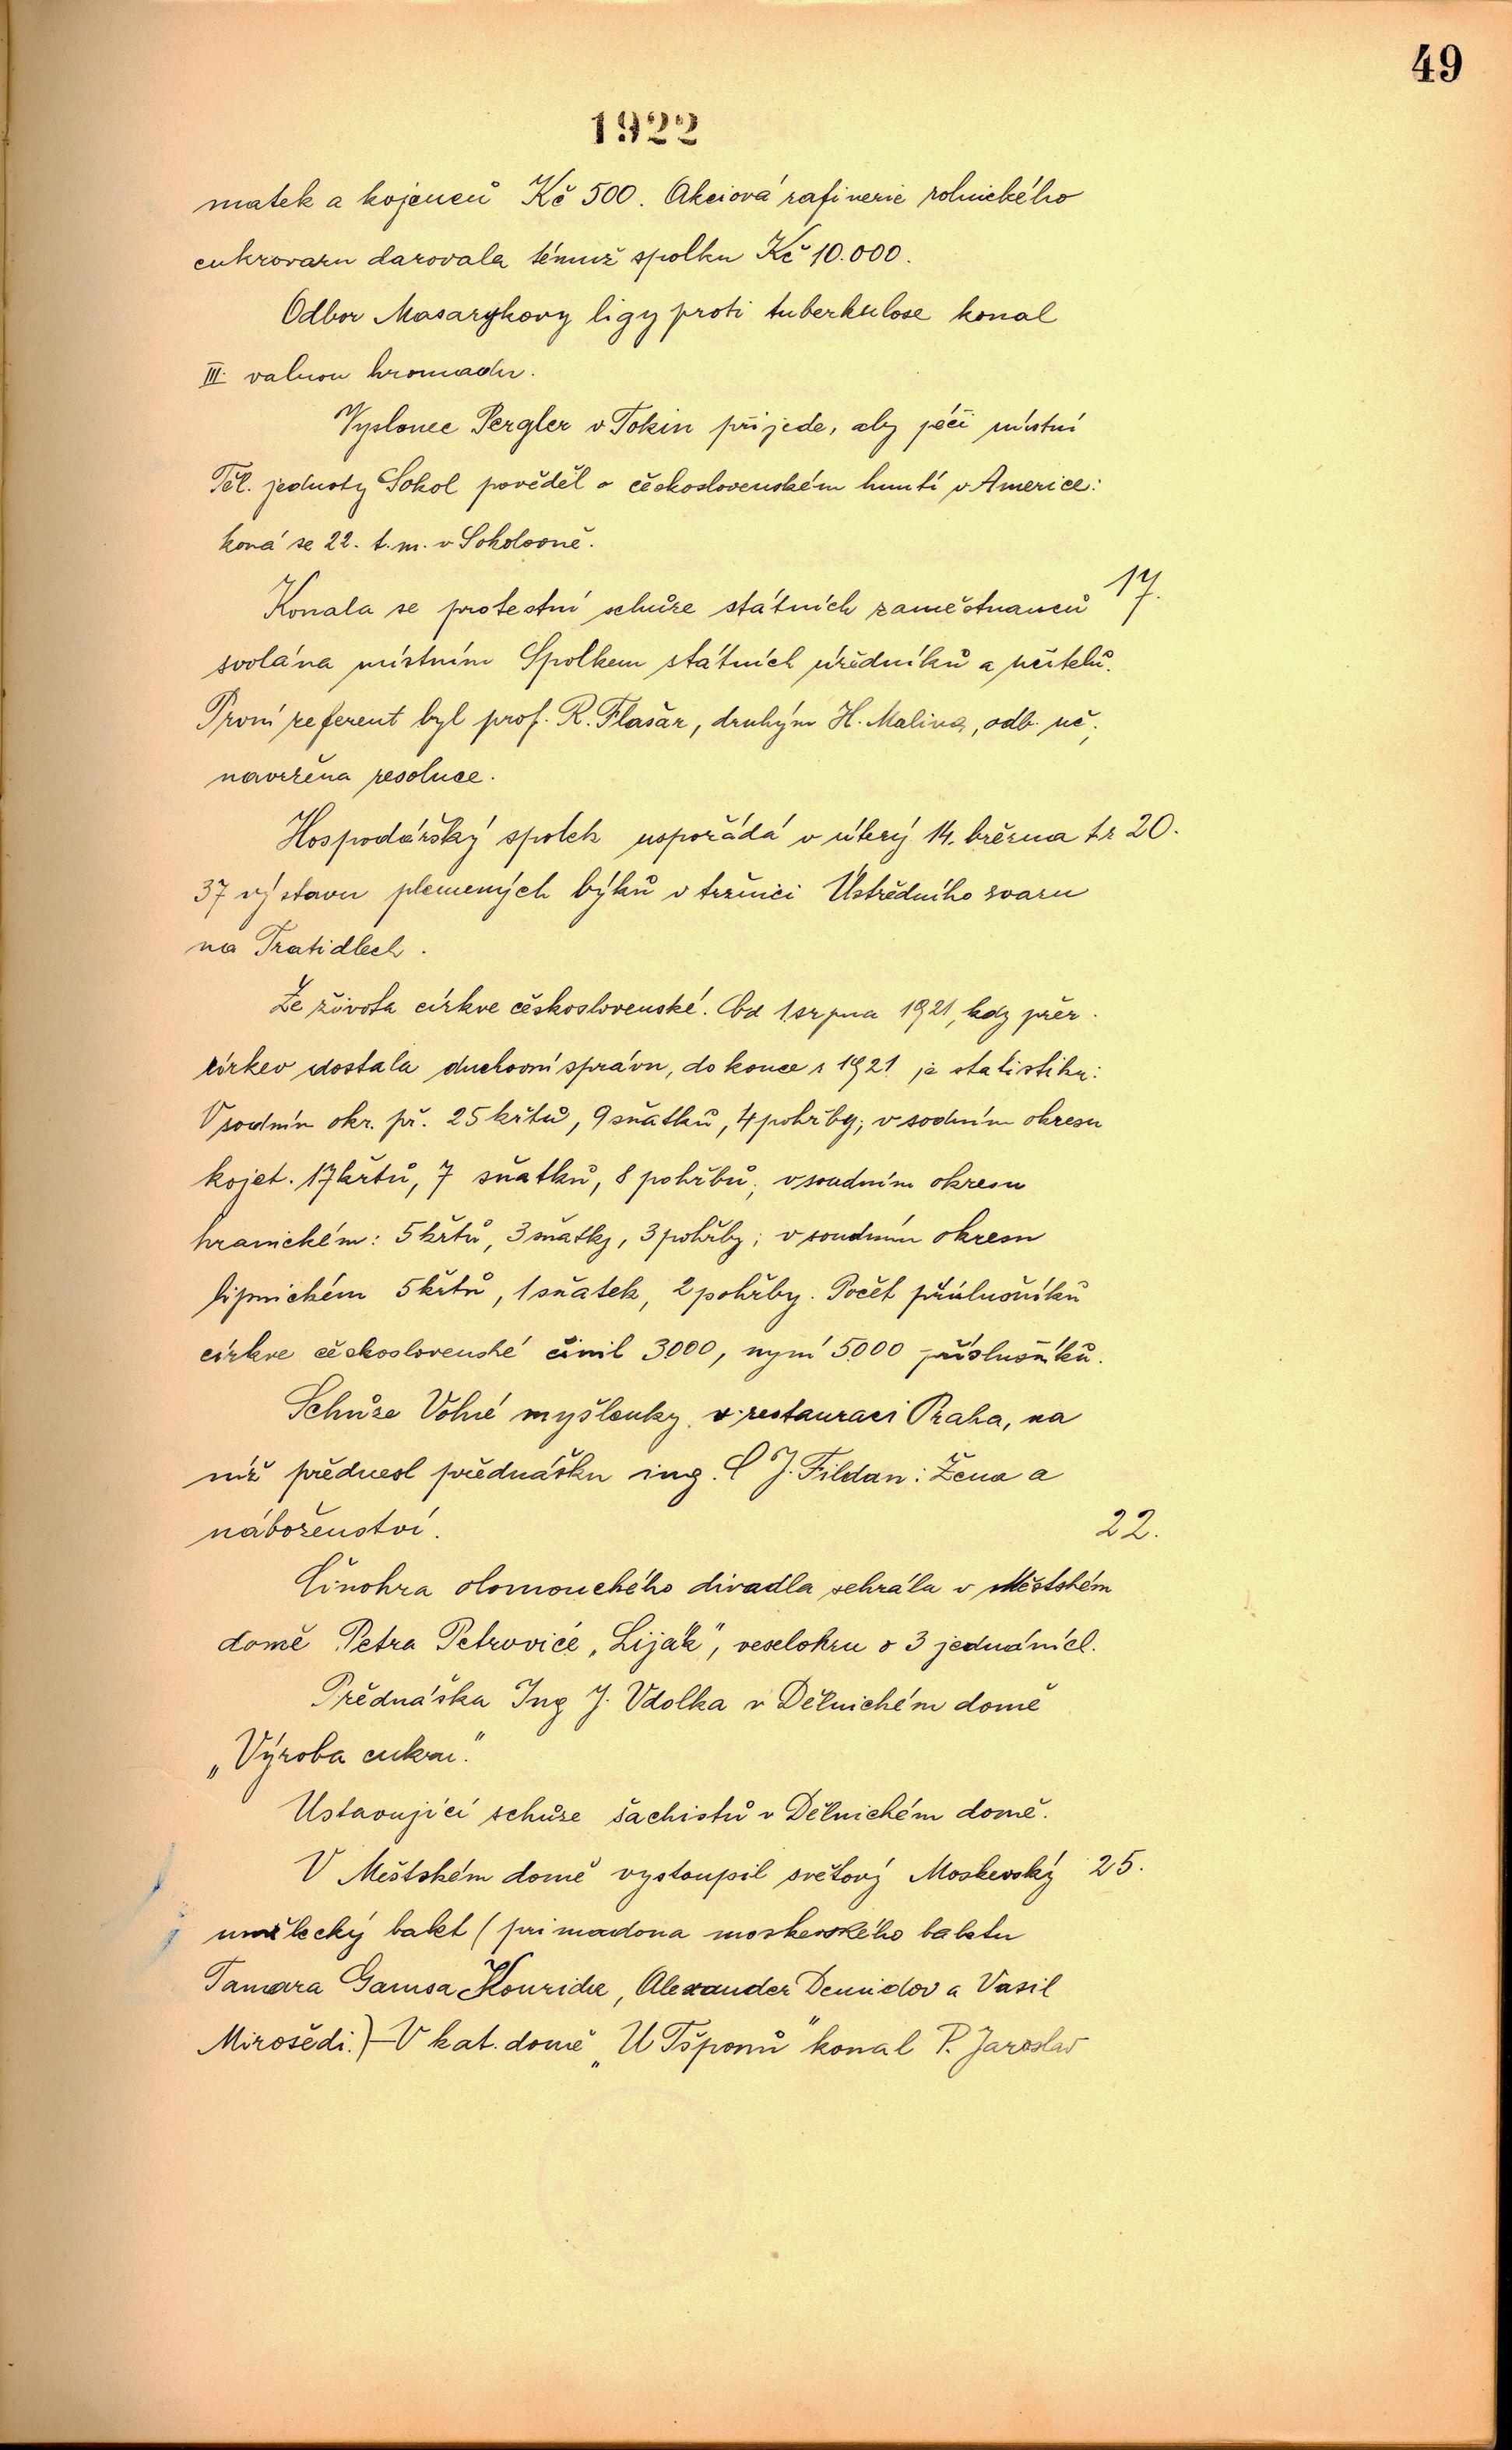 49
1922
matek a kojenců Kč 500. Akciová rafinerie rolnického
cukrovaru darovala témuž spolku Kč 10.000.
Odbor Masarykovy ligy proti tuberkulose konal
III. valnou hromadu.
Vyslanec Pergler v Tokiu přijede, aby péčí místní
Těl. jednoty Sokol pověděl o československém hnutí v Americe:
koná se 22. t.m. v Sokolovně.
Konala se protestní schůze státních zaměstnanců 17.
svolána místním Spolkem státních úředníků a učitelů.
První referent byl prof. R. Flašar, druhým H. Malina, odb. uč.;
navržena resoluce.
Hospodářský spolek uspořádá v úterý 14. března t.r 20.
37 výstavu plemených býků v tržnici Ústředního svazu
na Tratidlech.
Ze života církve československé. Od 1. srpna 1921, kdy přer.
církev dostala duchovní správu, do konce r 1921 je statistika:
V soudním okr. př. 25 křtů, 9 sňatků, 4 pohřby; v soudním okresu
kojet. 17 křtů, 7 sňatků, 8 pohřbů; v soudním okresu
hranickém: 5 křtů, 3 sňatky, 3 pohřby; v soudním okresu
lipnickém 5 křtů, 1 sňatek, 2 pohřby. Počet příslušníků
církve československé činil 3000, nyní 5000 příslušníků.
Schůze Volné myšlenky v restauraci Praha, na
níž přednesl přednášku ing. C J. Fildan: Žena a
náboženství. 22.
Činohra olomouckého divadla sehrála v Městském
domě Petra Petroviće „Liják", veselohru o 3 jednáních.
Přednáška Ing J. Vdolka v Dělnickém domě
„Výroba cukru."
Ustavující schůze šachistů v Dělnickém domě.
V Městském domě vystoupil světový Moskevský 25.
umělecký balet (primadona moskevského baletu
Tamara Gamsa Kouridze, Alexander Demidov a Vasil
Mirošedi.) — V kat. domě „U Tšponů" konal P. Jaroslav